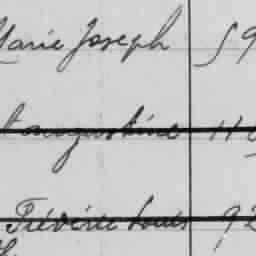 Marie Joseph 59
Augustine 11
Frédéric Louis 92